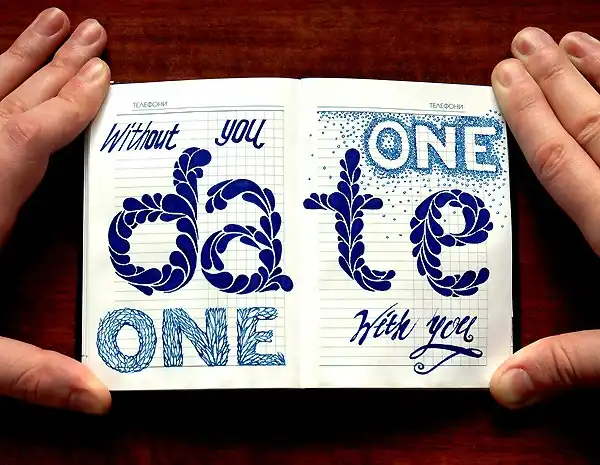 ТЕЛЕФОНИ
Without you
da
ONE
ТЕЛЕФОНИ
ONE
te
With you